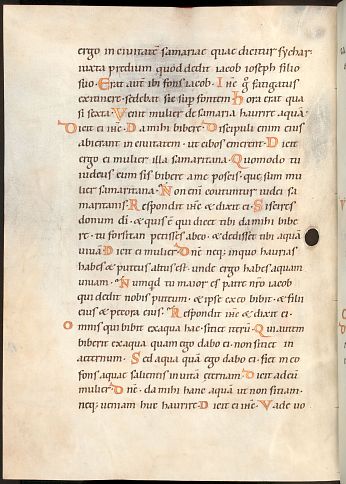 ergo in ciuitatem samariae quae dicitur sychar·
iuxta predium quod dedit iacob ioseph filio
suo· Erat autē ibi fons iacob· Ihc̄ g̊ fatigatus
ex itinere· sedebat sic sup̄ fontem· hora erat qua
si sexta· Venit mulier de samaria haurire aquā·
Dicit ei ihc̄· Da mihi bibere· Discipuli enim eius
abierant in ciuitatem· ut cibos emerent· Dicit
ergo ei mulier illa samaritana· Quomodo tu
iudeus cum sis bibere a me poscis· quę sum mu
lier samaritana· Non enī coutuntur iudei sa
maritanis· Respondit ihc̄ & dixit ei· Si scires
donum dī· & quis ē qui dicit tibi da mihi bibe
re· tu forsitan petisses ab eo· & dedisset tibi aquā
uiuā· Dicit ei mulier· Dn̄e· neq; in quo haurias
habes & puteus altus est· unde ergo habes aquam
uiuam· Numqd tu maior es patre nr̄o iacob
qui dedit nobis puteum· & ipse ex eo bibit· & filii
eius & pecora eius· Respondit ihc̄ & dixit ei·
Omnis qui bibit ex aqua hac· sitiet iterū· Qui autem
biberit ex aqua quam ego dabo ei· non sitiet in
aeternum· Sed aqua quā ego dabo ei· fiet in eo
fons aquae salientis in uitā ęternam· Dicit ad eū
mulier· Dn̄e· da mihi hanc aquā ut non sitiam·
neq; ueniam huc haurire· Dicit ei ihc̄· Vade uo